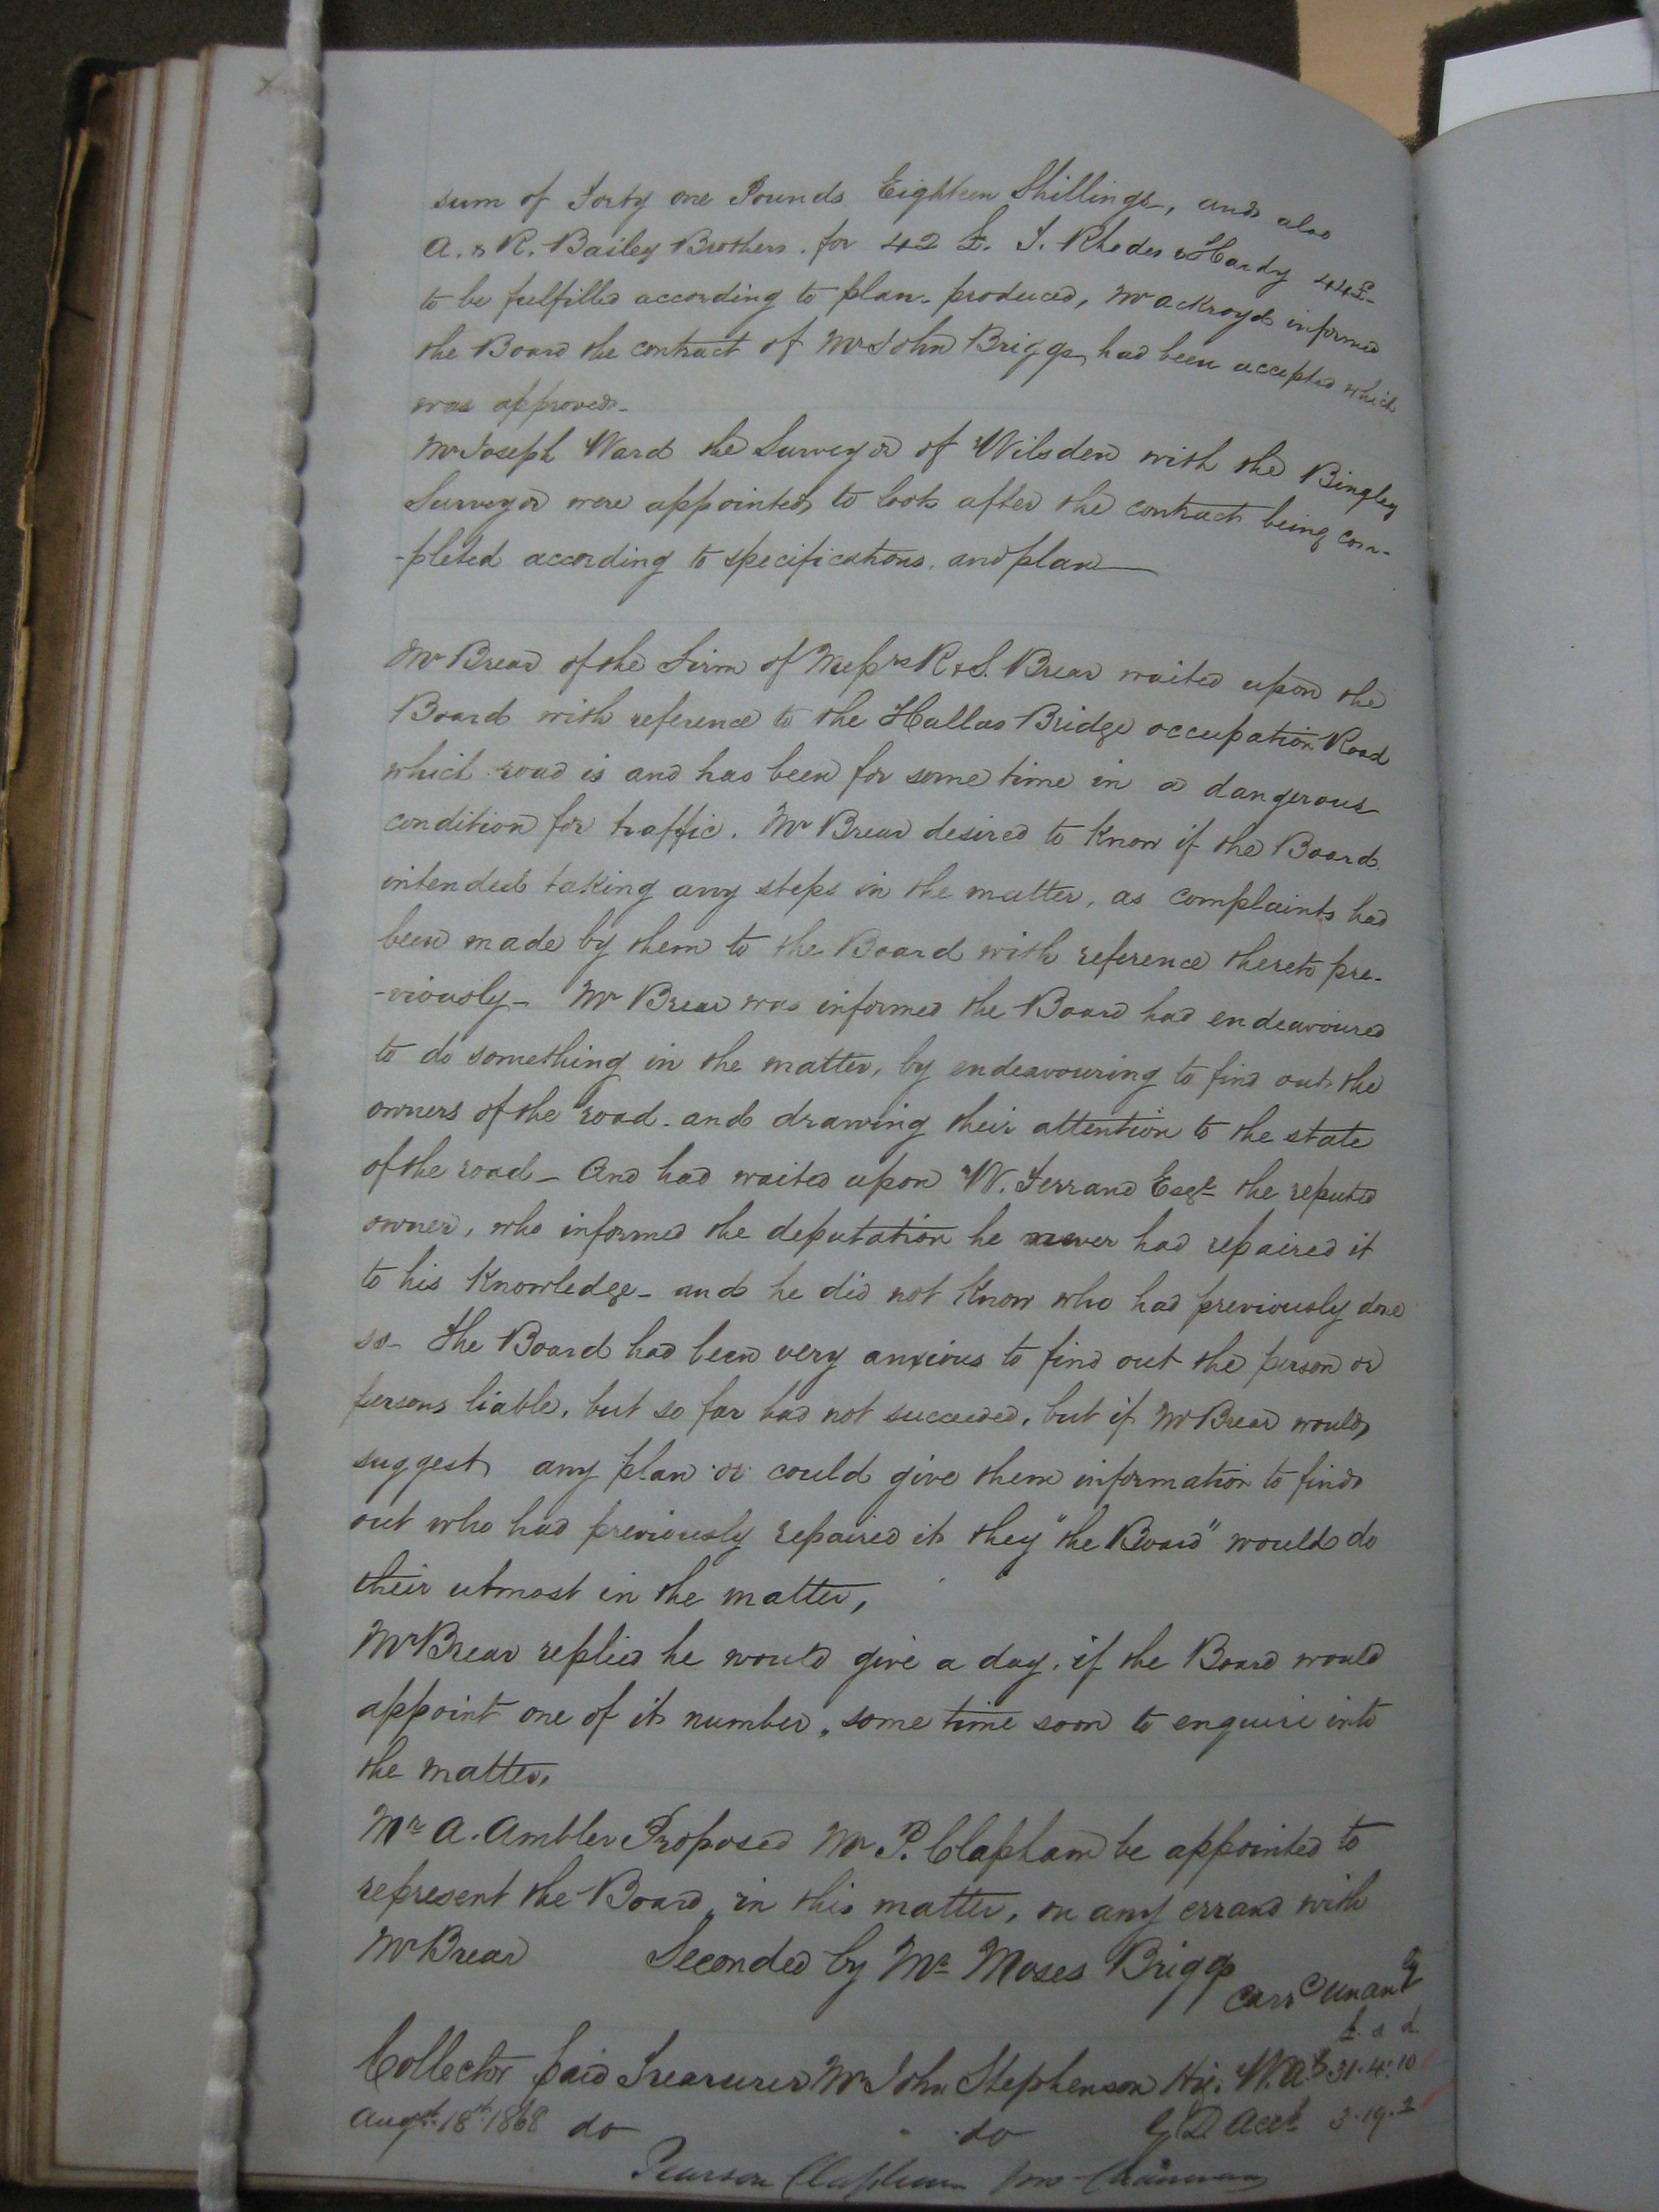 sum of Forty one Pounds Eighteen Shillings, and also
A. & R. Bailey Brothers. for 42 £. J. Rhodes & Hardy 44£-
to be fulfilled according to plan. produced, Mr Ackroyd informed
the Board the contract of Mr John Briggs had been accepted which
was approved-
Mr Joseph Ward the Surveyor of Wilsden with the Bingley
Surveyor were appointed to look after the contract being com-
-pleted according to specifications. and plan
Mr Brear of the Firm of Messrs R & S. Brear waited upon the
Board with reference to the Hallas Bridge occupation Road
which road is and has been for some time in a dangerous
condition for traffic. Mr Brear desired to know if the Board
intended taking any steps in the matter, as complaints had
been made by them to the Board with reference thereto pre-
-viously- Mr Brear was informed the Board had endeavoured
to do something in the matter, by endeavouring to find out the
owners of the road. and drawing their attention to the state
of the road- And had waited upon W. Ferrand Esqr the reputed
owner, who informed the deputation he never had repaired it
to his knowledge- and he did not know who had previously done
so- The Board had been very anxious to find out the person or
persons liable, but so far had not succeeded, but if Mr Brear would
suggest any plan or could give them information to find
out who had previously repaired it they "the Board" would do
their utmost in the matter,
Mr Brear replied he would give a day. if the Board would
appoint one of its number, some time soon to enquire into
the matter.
Mr A. Ambler Proposed Mr P. Clapham be appointed to
represent the Board, in this matter, on any errand with
Mr Brear Seconded by Mr Moses Briggs
Carrd Unany
£. s d
Collector paid Treasurer Mr John Stephenson Hi. W. a/c 31.4.10
Augst. 18th 1868 do do G D Acct 3.19.2
Pearson Clapham pro Chairman